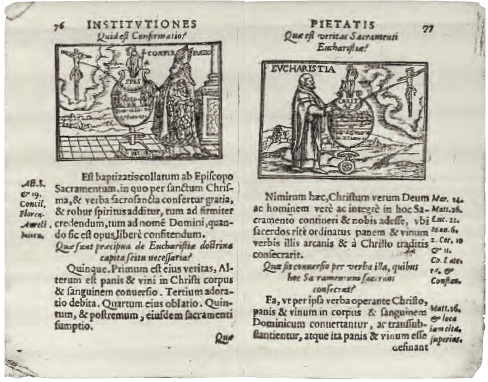 76 INSTITVTIONES
Quid est Confirmatio?
CONFIR MATIO
Est baptizatis collatum ab Episcopo
Sacramentum, in quo per sanctum Chris-
ma, & verba sacrosancta confertur gratia,
& robur spiritus additur, tum ad firmiter
credendum, tum ad nomē Domini, quan-
do sic est opus, liberè confitendum.
Act. 8.
& 19.
Concil.
Floren.
Quæ sunt præcipua de Eucharistiæ doctrina
capita scitu necessaria?
Quinque. Primum est eius veritas, Al-
terum est panis & vini in Christi corpus
& sanguinem conuersio. Tertium adora-
tio debita. Quartum eius oblatio. Quin-
tum, & postremum, eiusdem sacramenti
sumptio.
Quæ
PIETATIS 77
Quæ est veritas Sacramenti
Eucharistiæ?
EUCHARISTIA
Nimirum hæc, Christum verum Deum
ac hominem verè ac integrè in hoc Sa-
cramento contineri & nobis adesse, vbi
sacerdos ritè ordinatus panem & vinum
verbis illis arcanis & à Christo traditis
consecrarit.
Mar. 14.
Matt. 26.
Luc. 22.
Ioan. 6.
2. Cor. 10
& 11.
Quæ fit conuersio per verba illa, quibus
hoc Sacramentum sacerdos
consecrat?
Ea, vt per ipsa verba operante Christo,
panis & vinum in corpus & sanguinem
Dominicum conuertantur, ac transsub-
stantientur, atque ita panis & vinum esse
Matt. 26.
& loca
iam cita.
superius.
desinant